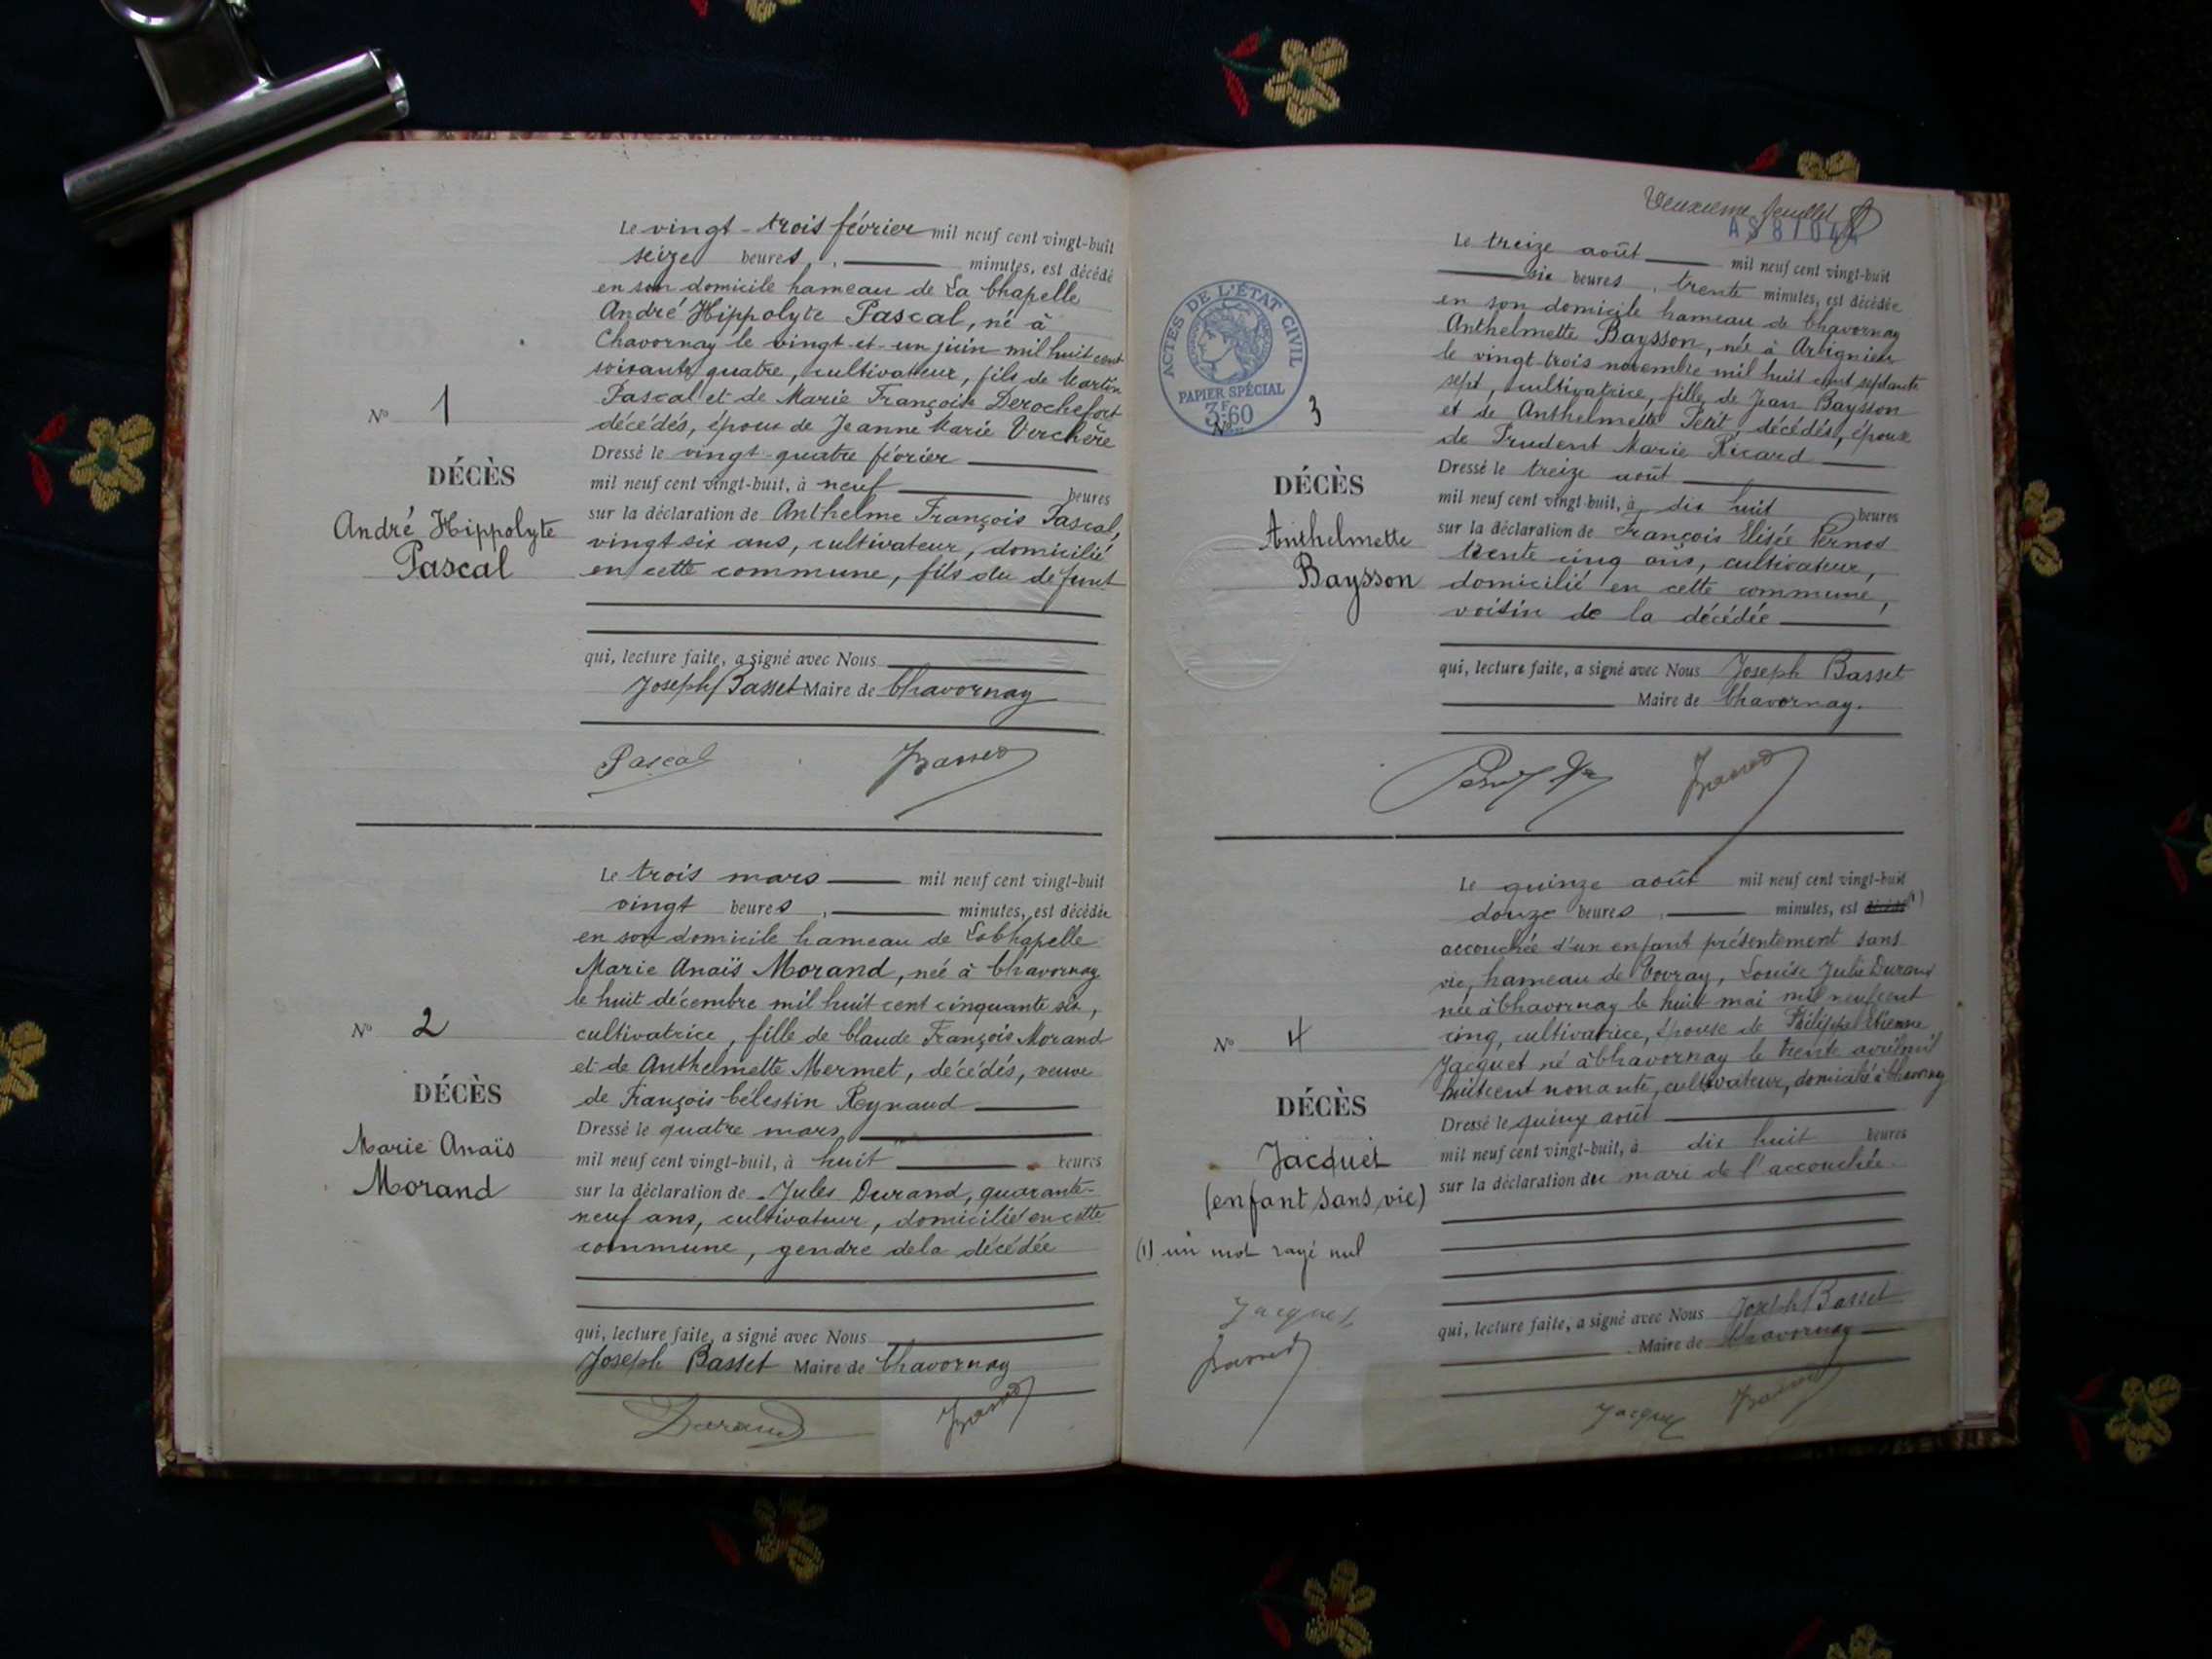 Le vingt-trois février mil neuf cent vingt-huit
seize heures, minutes, est décédé
en son domicile hameau de La Chapelle
André Hippolyte Pascal, né à
Chavornay le vingt-et-un juin mil huit cent
soixante quatre, cultivateur, fils de Martin
Pascal et de Marie Françoise Derochefort
décédés, époux de Jeanne Marie Verchère
Nº 1
DÉCÈS
André Hippolyte
Pascal
Dressé le vingt-quatre février
mil neuf cent vingt-huit, à neuf heures
sur la déclaration de Anthelme François Pascal,
vingt six ans, cultivateur, domicilié
en cette commune, fils du défunt
qui, lecture faite, a signé avec Nous
Joseph Basset Maire de Chavornay
Pascal Basset
Le trois mars mil neuf cent vingt-huit
vingt heures, minutes, est décédée
en son domicile hameau de La Chapelle
Marie Anaïs Morand, née à Chavornay
le huit décembre mil huit cent cinquante six,
cultivatrice, fille de Claude François Morand
et de Anthelmette Mermet, décédés, veuve
de François Célestin Reynaud
Nº 2
DÉCÈS
Marie Anaïs
Morand
Dressé le quatre mars
mil neuf cent vingt-huit, à huit heures
sur la déclaration de Jules Durand, quarante-
neuf ans, cultivateur, domicilié en cette
commune, gendre de la décédée
qui, lecture faite, a signé avec Nous
Joseph Basset Maire de Chavornay
Durand Basset
Deuxième feuillet
ACTES DE L'ÉTAT CIVIL
PAPIER SPÉCIAL
3F60
Le treize août mil neuf cent vingt-huit
six heures, trente minutes, est décédée
en son domicile hameau de Chavornay
Anthelmette Baysson, née à Arbignieu
le vingt trois novembre mil huit cent septante
sept, cultivatrice, fille de Jean Baysson
et de Anthelmette Petit, décédés, épouse
de Prudent Marie Ricard
Nº 3
DÉCÈS
Anthelmette
Baysson
Dressé le treize août
mil neuf cent vingt-huit, à dix huit heures
sur la déclaration de François Elisée Pernod
trente cinq ans, cultivateur,
domicilié en cette commune,
voisin de la décédée
qui, lecture faite, a signé avec Nous Joseph Basset
Maire de Chavornay.
Basset
Le quinze août mil neuf cent vingt-huit
douze heures, minutes, est décédé (1)
accouchée d'un enfant présentement sans
vie, hameau de Vovray, Louise Julie Durand
née à Chavornay le huit mai mil neuf cent
cinq, cultivatrice, épouse de Philippe Etienne
Jacquet né à Chavornay le trente avril mil
huit cent nonante, cultivateur, domicilié à Chavornay
Nº 4
DÉCÈS
Jacquet
(enfant sans vie)
Dressé le quinze août
mil neuf cent vingt-huit, à dix huit heures
sur la déclaration du mari de l'accouchée.
(1) un mot rayé nul
Jacquet
Basset
qui, lecture faite, a signé avec Nous Joseph Basset
Maire de Chavornay
Jacquet Basset